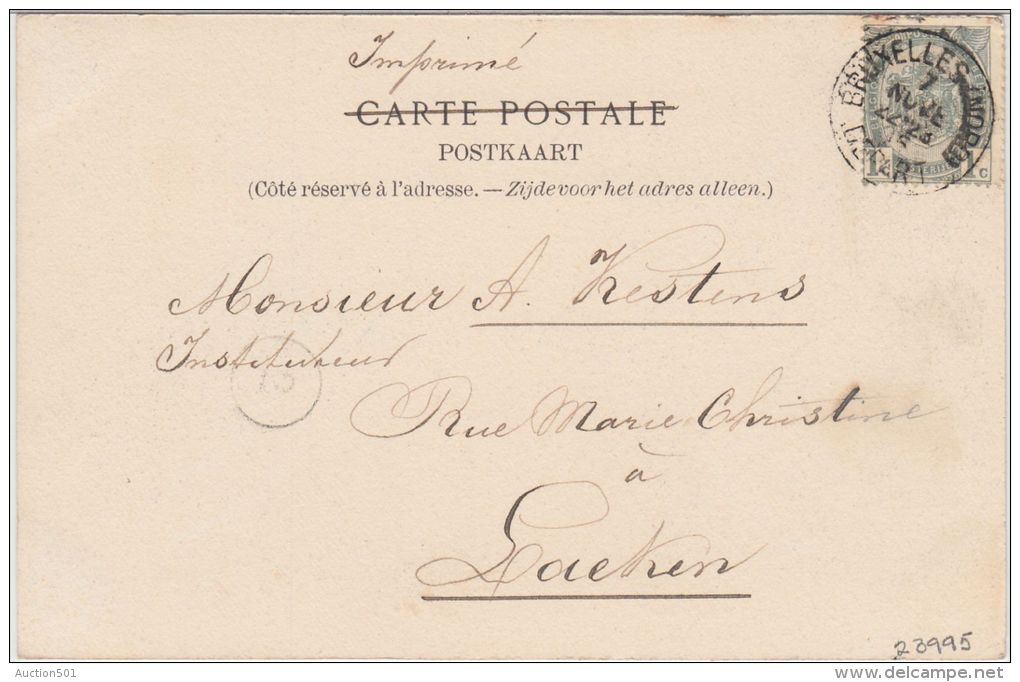 Imprimé
CARTE POSTALE
POSTKAART
(Côté réservé à l'adresse. — Zijde voor het adres alleen.)
BRUXELLES (NORD)
7
NOVE
22-23
DÉPART
1 1 c
Monsieur A. Kestens
Instituteur
Rue Marie Christine
à
Laeken
23995
Auction501
www.delcampe.net